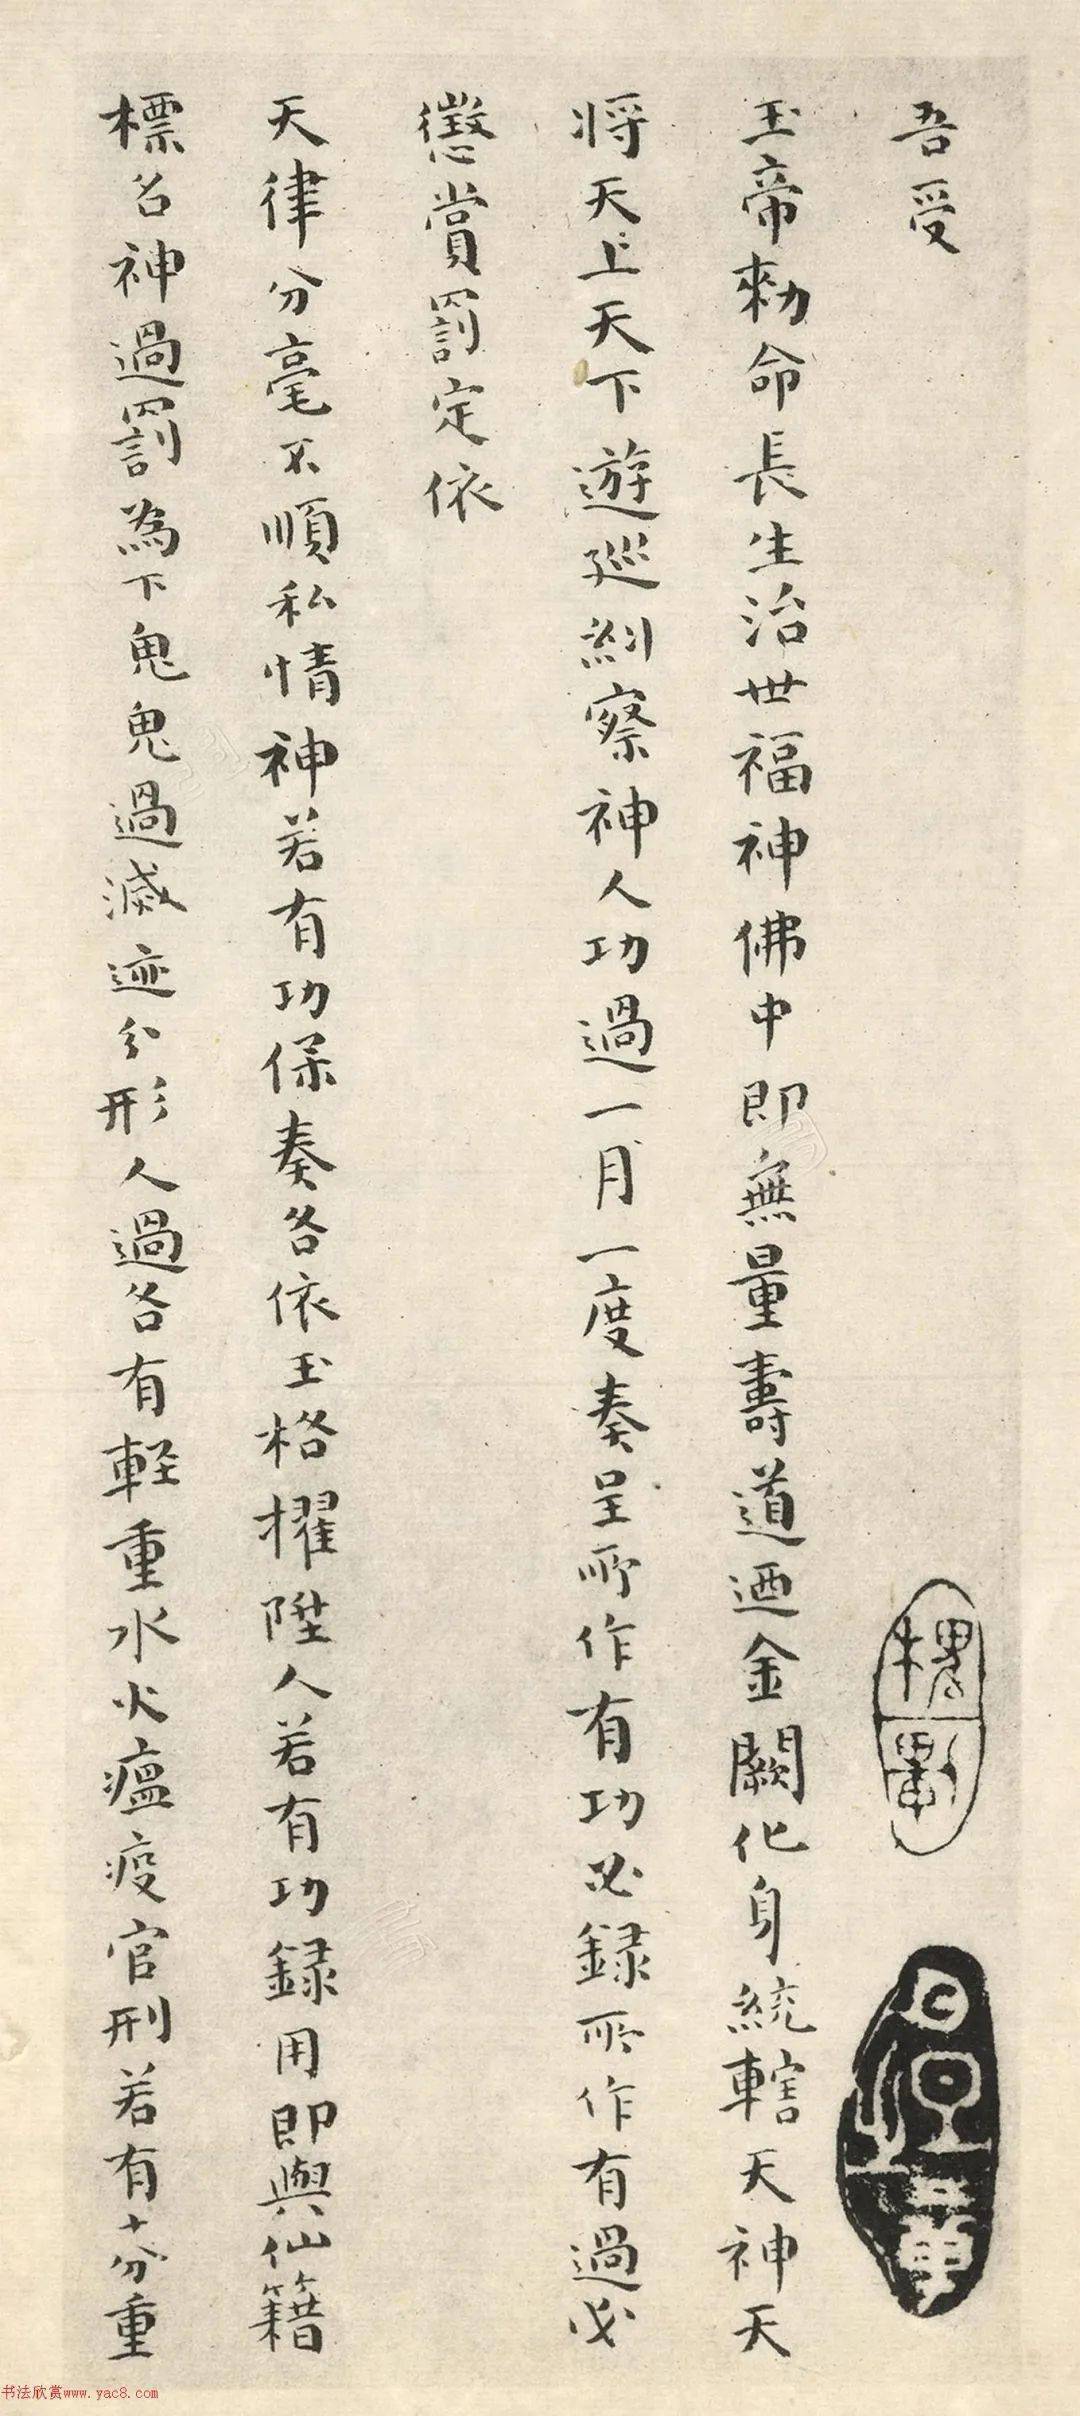 吾受
玉帝勑命長生治世福神佛中即無量壽道廼金闕化身統轄天神天
將天上天下遊廵糾察神人功過一月一度奏呈所作有功必録所作有過必
懲賞罰定依
天律分毫不順私情神若有功保奏各依玉格擢陞人若有功録用即與仙籍
標名神過罰為下鬼鬼過滅迹分形人過各有軽重水火瘟疫官刑若有十分重
书法欣赏www.yac8.com